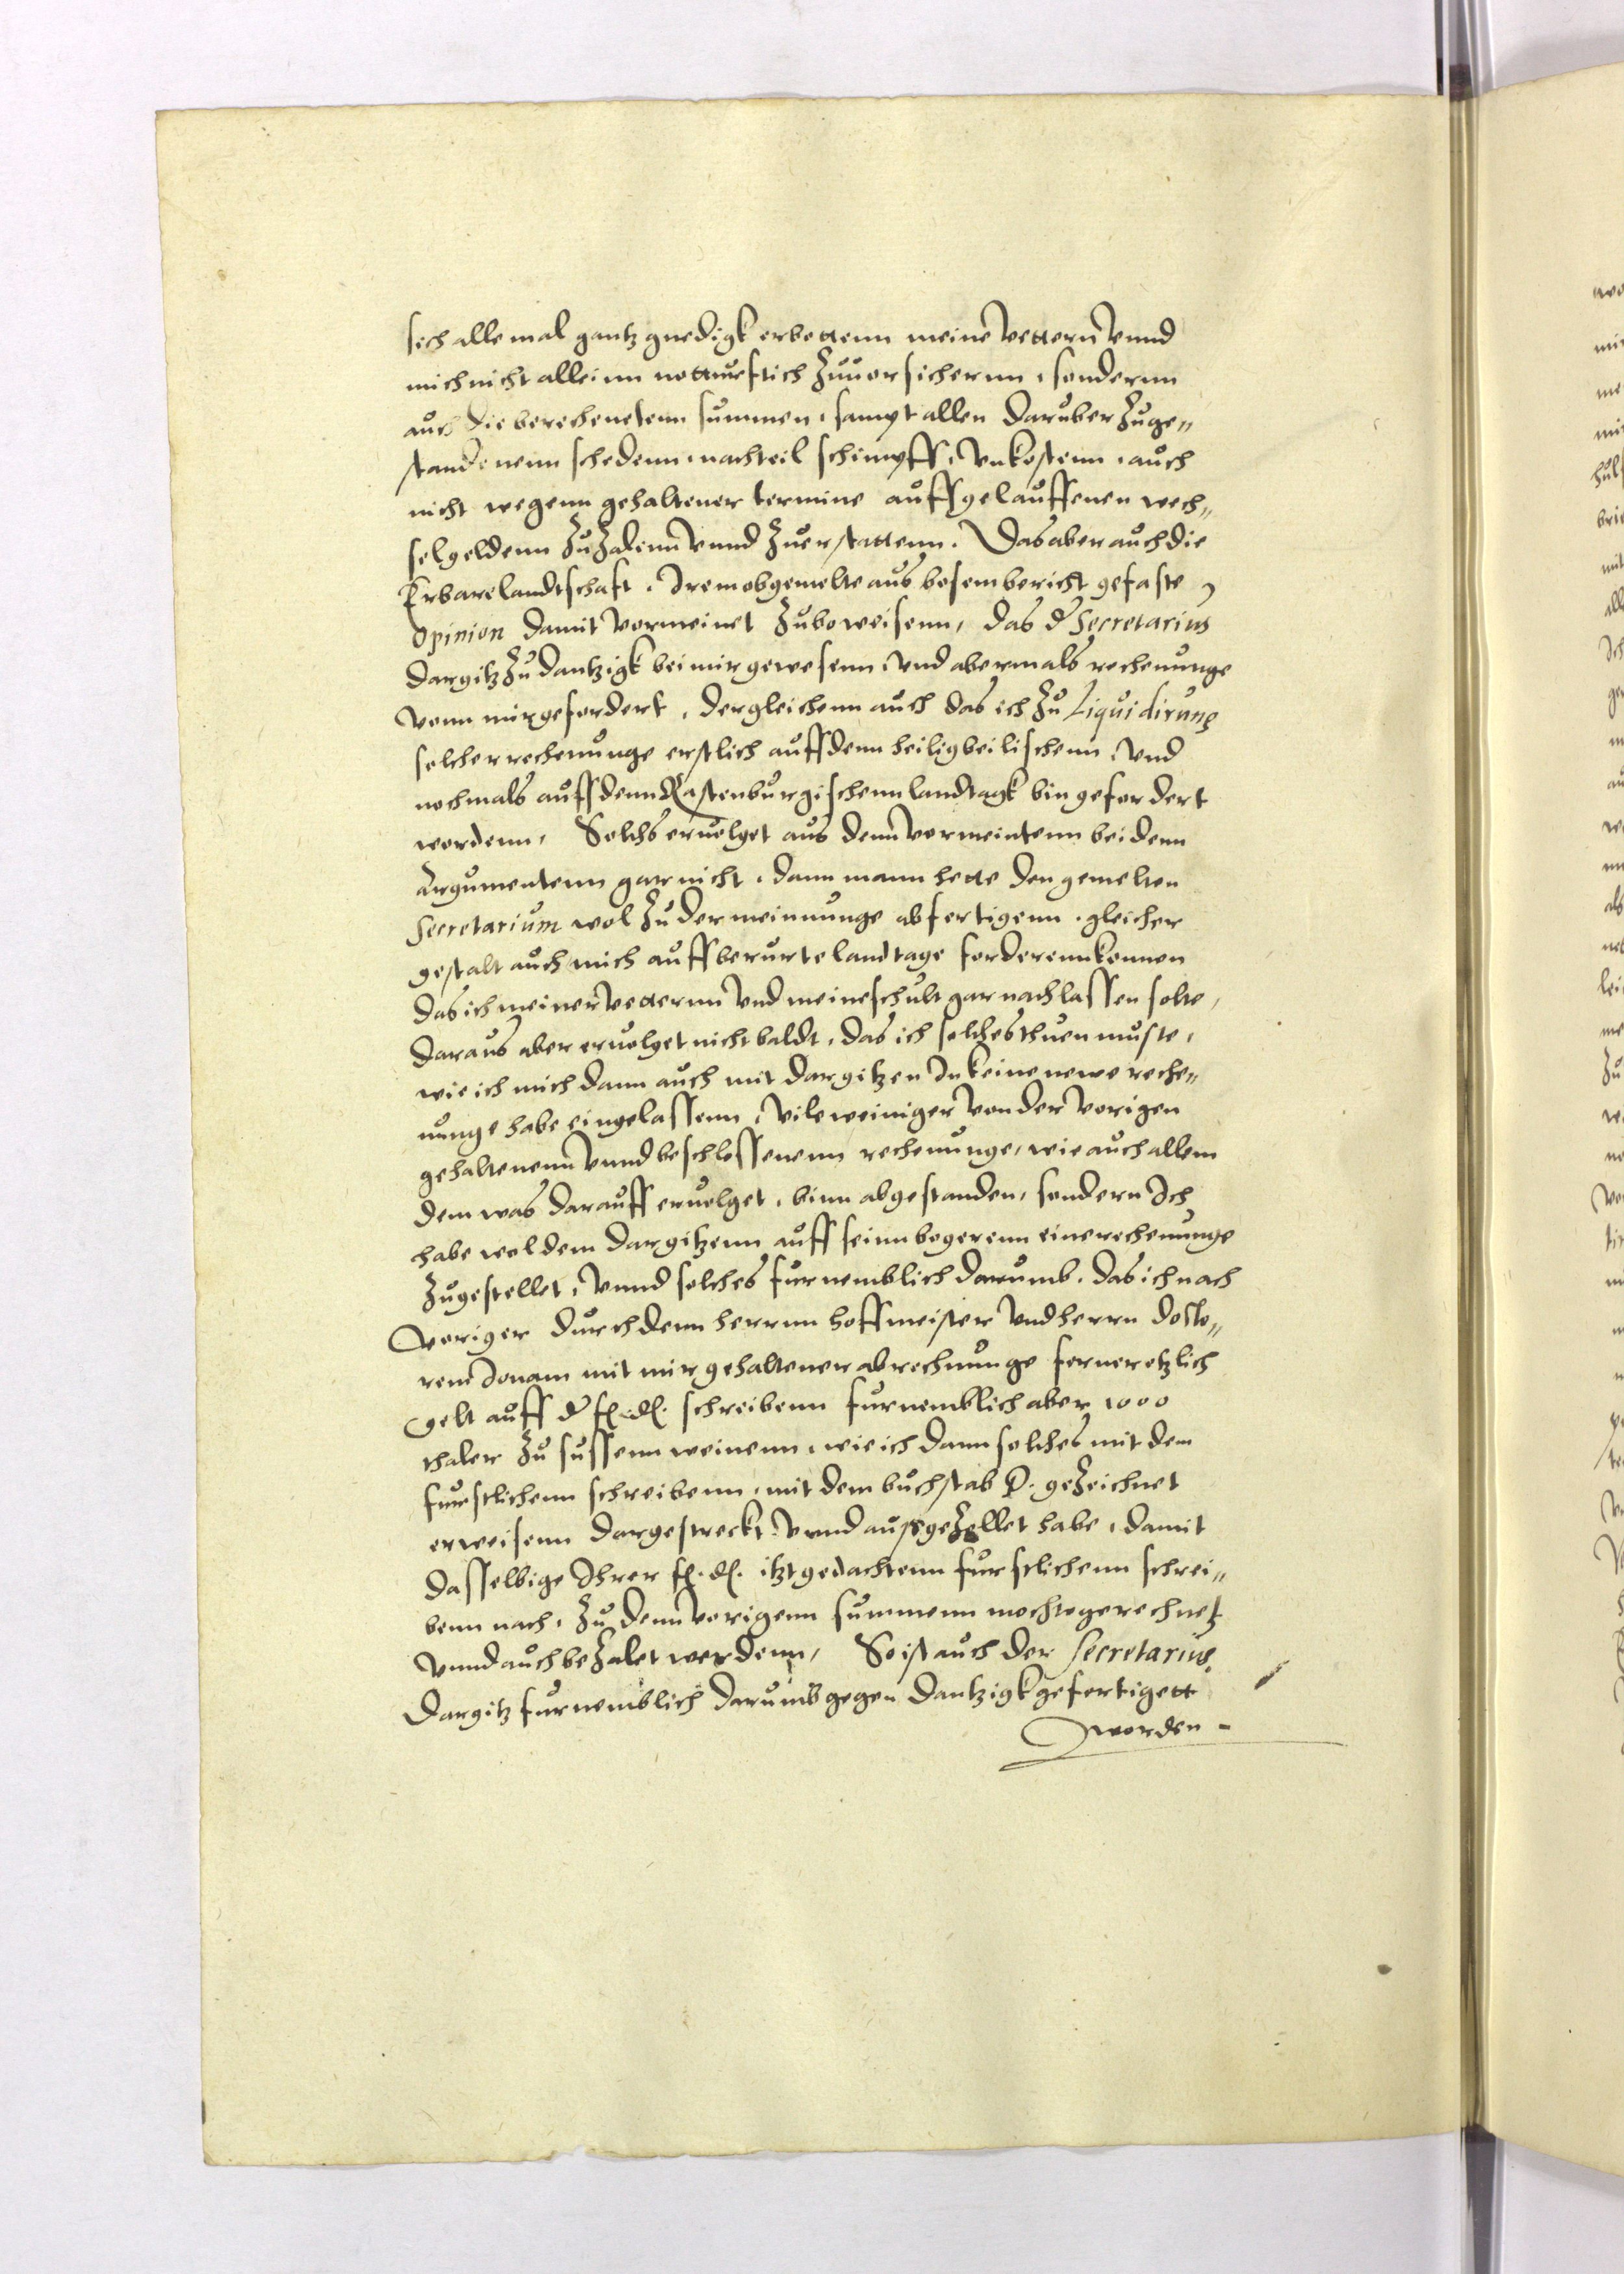 sich allemal gantz gnedigk erbettenn meine Vettern Vnnd
mich nicht alleinn notturftich zuuorsichernn, sondernn
auch die berechenetenn summen, sampt allen daruber zuge„
standenenn schedenn, nachteil schimpff, Vnkostenn, auch
nicht wegenn gehaltener termine auffgelauffenen wech„
selgeldenn zuzalenn Vnnd zuerstattenn. Das aber auch die
Erbare landtschaft, Irem obgemelte aus bosem bericht gefaste
Opinion damit vormeinet zubeweisenn, das d Secretarius
Dargitz zu dantzigk bei mir gewesenn, Vnd abermals rechenunge
Vonn mir gefordert, dergleichenn auch das ich zu Liquidirung
solcher rechenunge erstlich auff denn heiligbeilischenn, Vnd
nochmals auff denn Rastenburgischenn landtagk bin gefordert
wordenn, Solchs eruolget aus denn Vormeintenn beidenn
Argumentenn gar nicht, dann mann hette den gemelten
Secretarium wol zu der meinnunge abfertigenn, gleicher
gestalt auch mich auff berurte landtage forderenn konnen
das ich meiner Vetternn Vnd meine schult gar nachlassen solte,
daraus aber eruolget nicht baldt, das ich solches thuen muste,
wie ich mich dann auch mit Dargitzen In keine newe reche„
nunge habe eingelassenn, Vile weiniger Von der Vorigen
gehaltenenn Vnnd beschlossenenn rechenunge, wie auch allem
dem was darauff eruolget, binn abgestanden, sondern Ich
habe wol dem Dargitzenn auff seinn begerenn eine rechenunge
zugestellet, Vnnd solches furnemblich darumb, das ich nach
Voriger durch denn herrnn hoffmeister Vnd herrn docto„
rem Jonam mit mir gehaltener abrechnunge ferner etzlich
gelt auff d f. d. schreibenn furnemblich aber 1000
thaler zu sussenn weinenn, wie ich dann solches mit dem
furstlichenn schreibenn, mit dem buchstab D. gezeichnet
erweisenn dargestreckt Vnnd aussgezellet habe, damit
dasselbige Ihrer f. d. itzt gedachtenn furstlichenn schrei„
benn nach, zu denn Vorigenn summenn mochte gerechnet
Vnnd auch bezalet werdenn, So ist auch der Secretarius
Dargitz furnemblich darumb gegen Dantzigk gefertigett
worden -